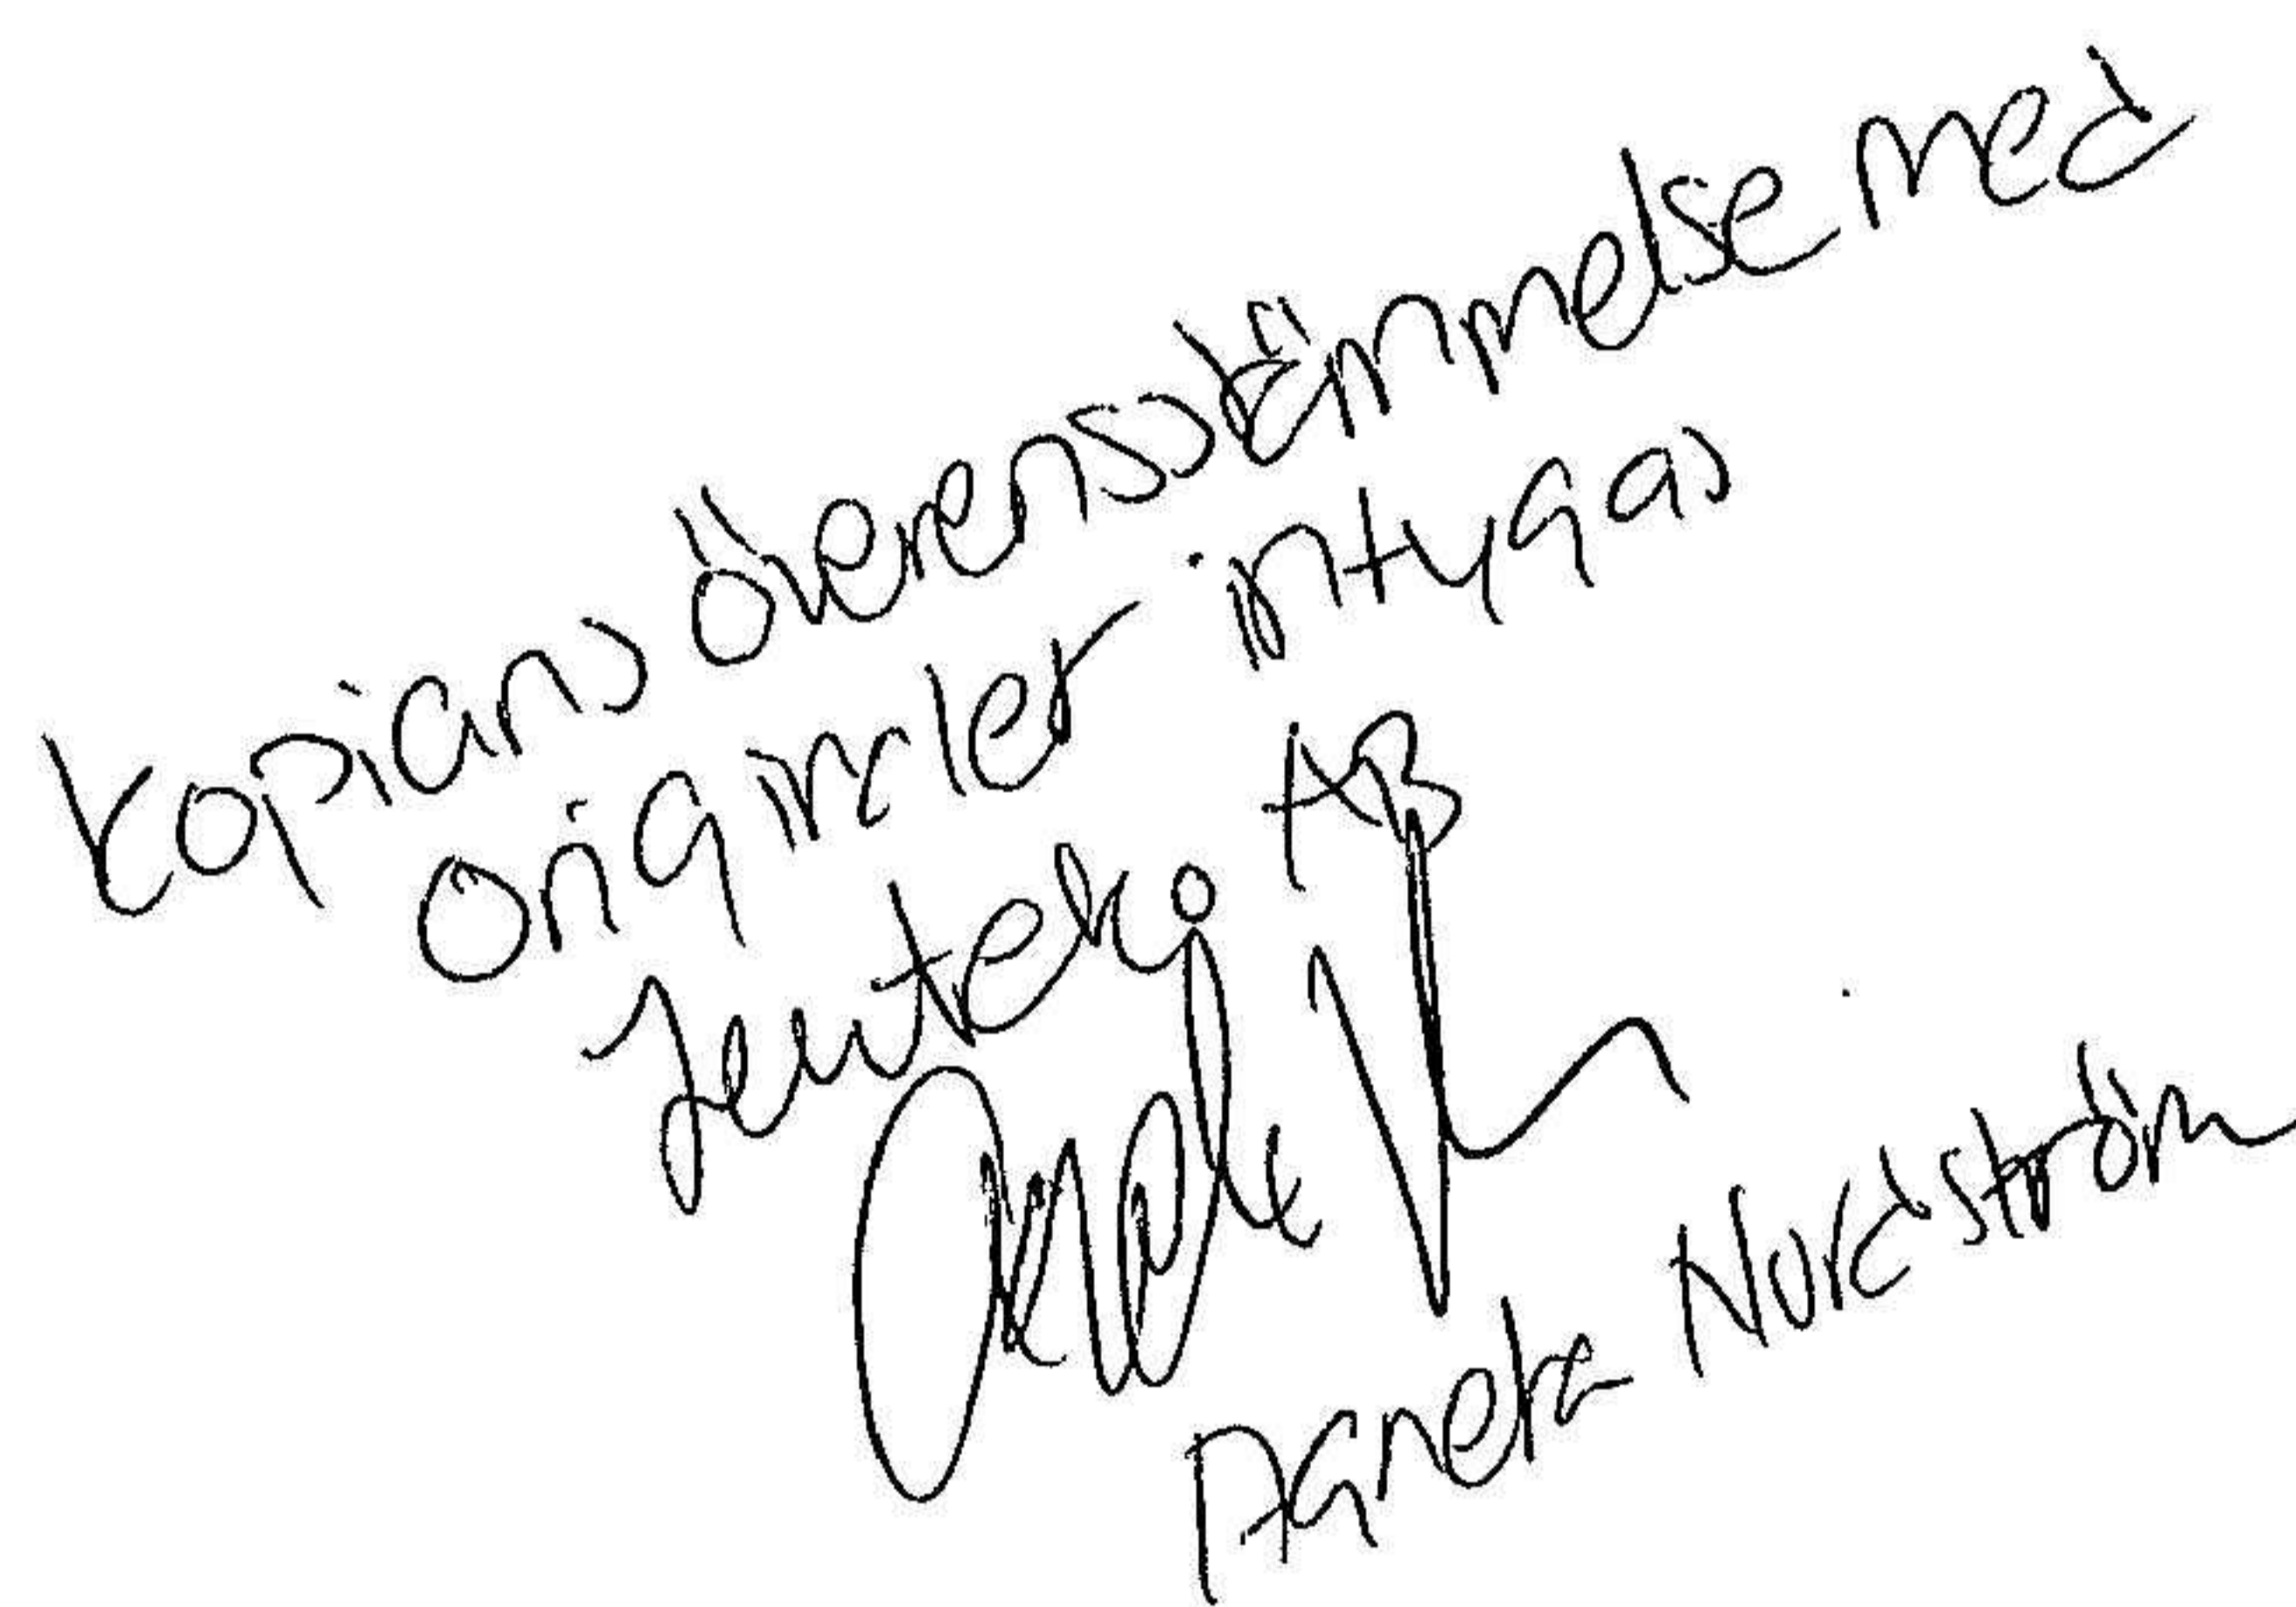 Kopians överensstämmelse med
originaler intygas
AB
Agneta Nordström